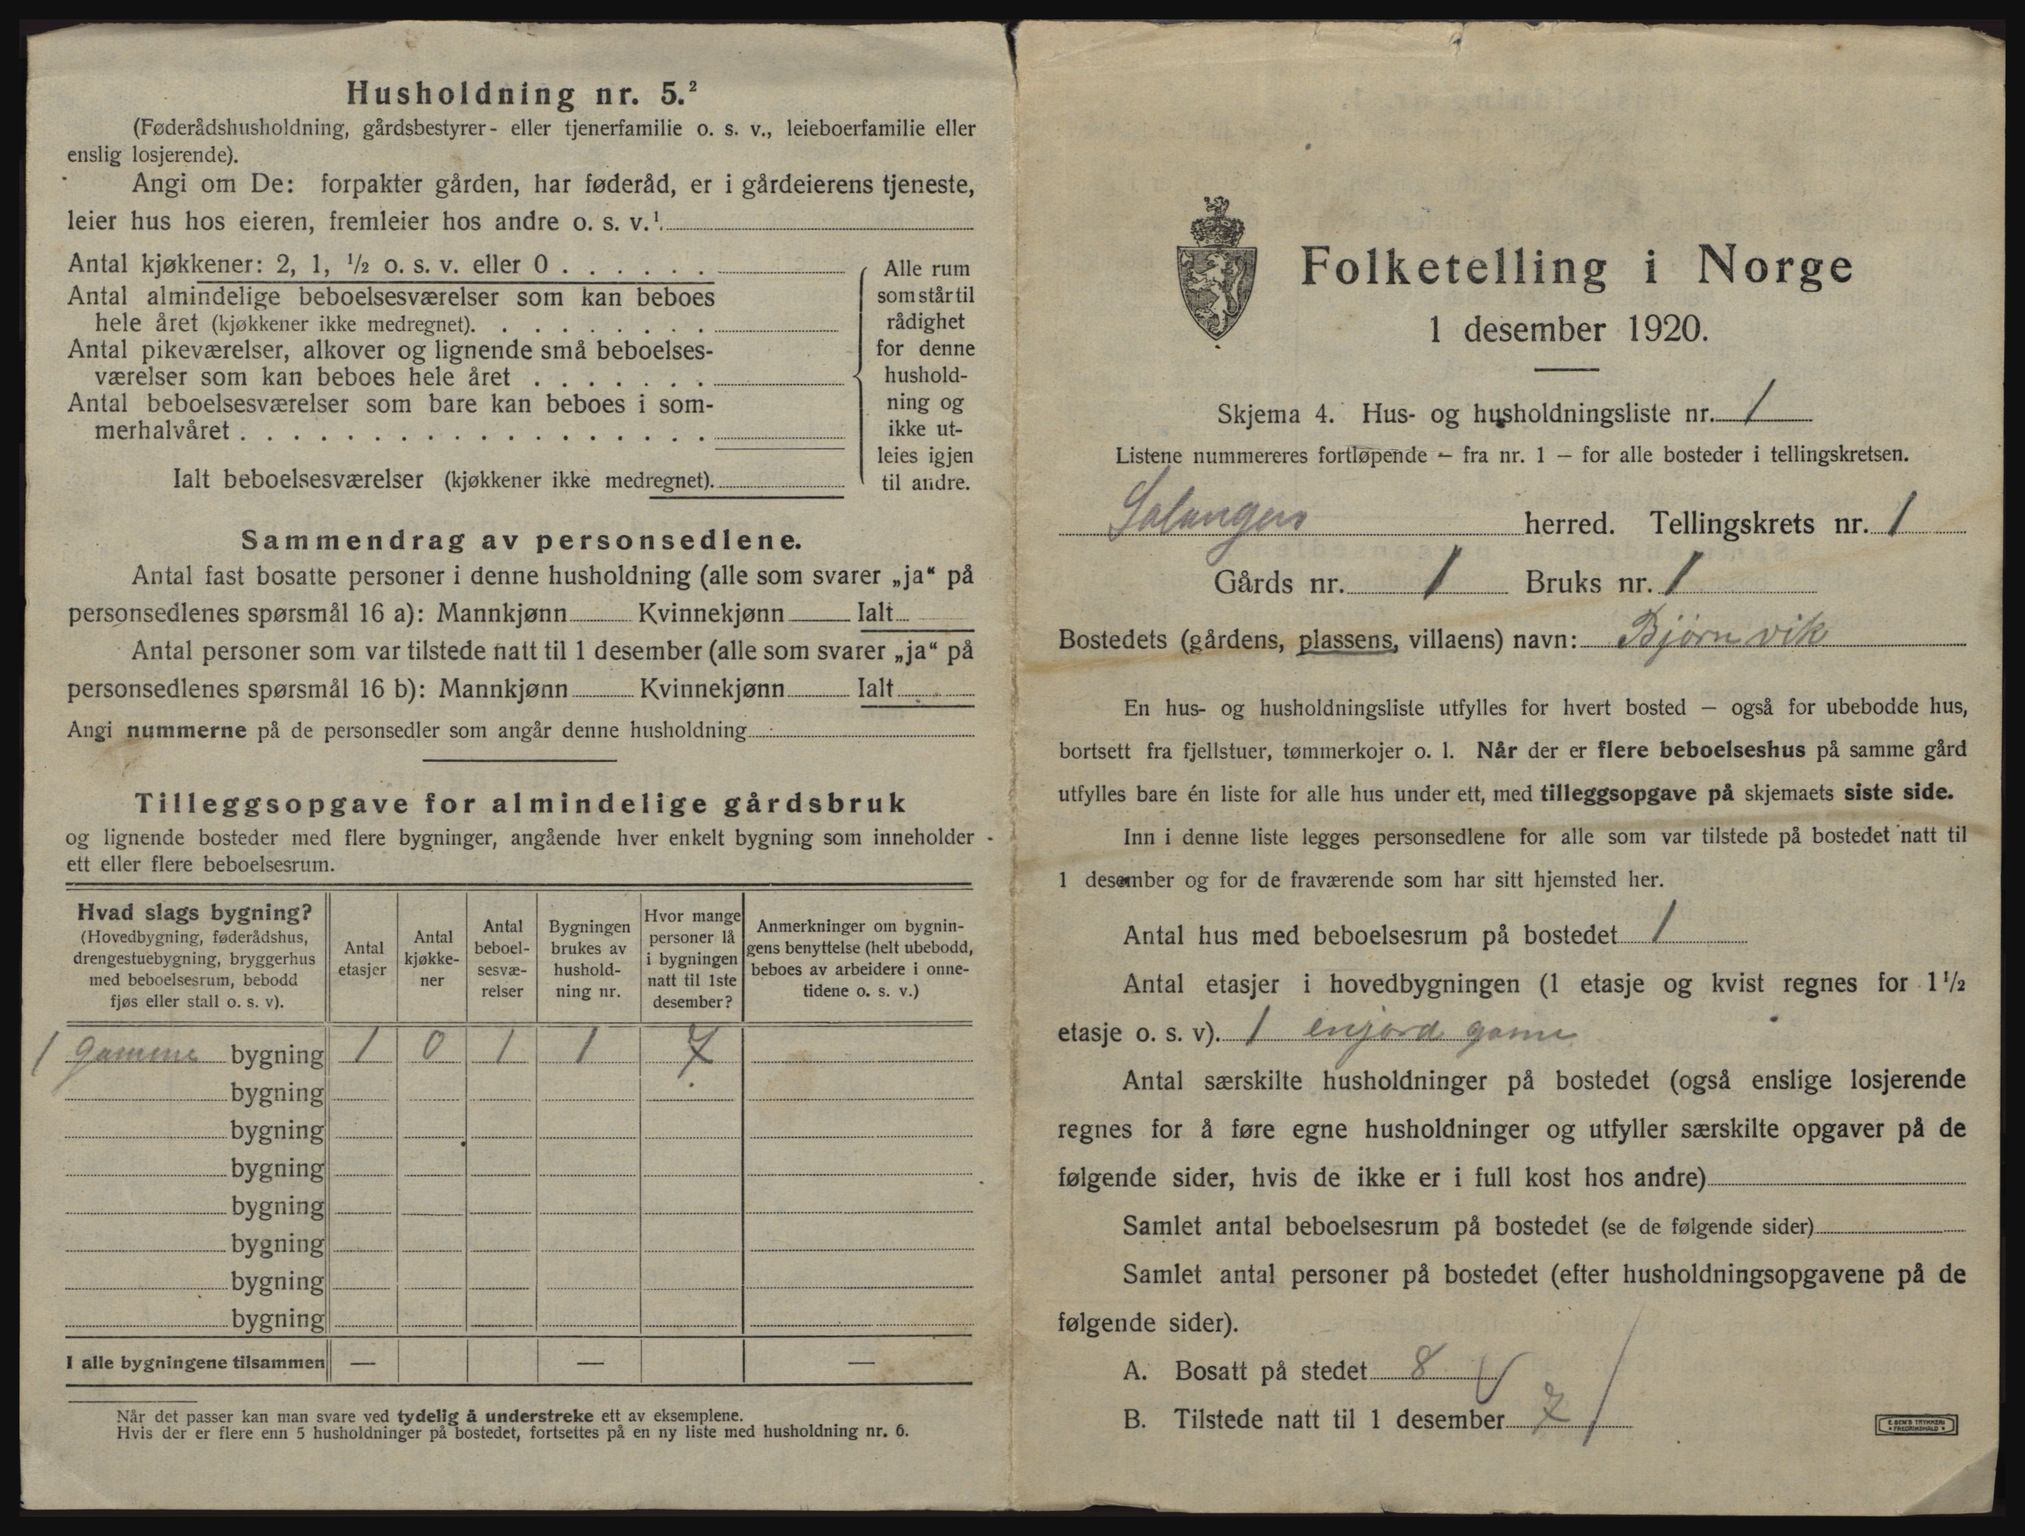 Husholdning nr. 5.²
(Føderådshusholdning, gårdsbestyrer- eller tjenerfamilie o. s. v., leieboerfamilie eller
enslig losjerende).
Angi om De: forpakter gården, har føderåd, er i gårdeierens tjeneste,
leier hus hos eieren, fremleier hos andre o. s. v.¹.
Antal kjøkkener: 2, 1, ½ o. s. v. eller 0 . . . . . .
Antal almindelige beboelsesværelser som kan beboes
hele året (kjøkkener ikke medregnet). . . . . . . . .
Antal pikeværelser, alkover og lignende små beboelses-
værelser som kan beboes hele året . . . . . . .
Antal beboelsesværelser som bare kan beboes i som-
merhalvåret . . . . . . . . . . . . . . . . . .
Ialt beboelsesværelser (kjøkkener ikke medregnet).
Alle rum
som står til
rådighet
for denne
hushold-
ning og
ikke ut-
leies igjen
til andre.
Sammendrag av personsedlene.
Antal fast bosatte personer i denne husholdning (alle som svarer „ja“ på
personsedlenes spørsmål 16 a): Mannkjønn Kvinnekjønn Ialt
Antal personer som var tilstede natt til 1 desember (alle som svarer „ja“ på
personsedlenes spørsmål 16 b): Mannkjønn Kvinnekjønn Ialt
Angi nummerne på de personsedler som angår denne husholdning
Tilleggsopgave for almindelige gårdsbruk
og lignende bosteder med flere bygninger, angående hver enkelt bygning som inneholder
ett eller flere beboelsesrum.
Hvad slags bygning?
(Hovedbygning, føderådshus,
drengestuebygning, bryggerhus
med beboelsesrum, bebodd
fjøs eller stall o. s. v).
Antal
etasjer
Antal
kjøkke-
ner
Antal
beboel-
sesvæ-
relser
Bygningen
brukes av
hushold-
ning nr.
Hvor mange
personer lå
i bygningen
natt til 1ste
desember?
Anmerkninger om bygnin-
gens benyttelse (helt ubebodd,
beboes av arbeidere i onne-
tidene o. s. v.)
1 gamme bygning 1 0 1 1 7
bygning
bygning
bygning
bygning
bygning
bygning
bygning
I alle bygningene tilsammen — — —
Når det passer kan man svare ved tydelig å understreke ett av eksemplene.
Hvis der er flere enn 5 husholdninger på bostedet, fortsettes på en ny liste med husholdning nr. 6.
Folketelling i Norge
1 desember 1920.
Skjema 4. Hus- og husholdningsliste nr. 1
Listene nummereres fortløpende — fra nr. 1 — for alle bosteder i tellingskretsen.
Salangen herred. Tellingskrets nr. 1
Gårds nr. 1 Bruks nr. 1
Bostedets (gårdens, plassens, villaens) navn: Bjørnvik
En hus- og husholdningsliste utfylles for hvert bosted — også for ubebodde hus,
bortsett fra fjellstuer, tømmerkojer o. l. Når der er flere beboelseshus på samme gård
utfylles bare én liste for alle hus under ett, med tilleggsopgave på skjemaets siste side.
Inn i denne liste legges personsedlene for alle som var tilstede på bostedet natt til
1 desember og for de fraværende som har sitt hjemsted her.
Antal hus med beboelsesrum på bostedet 1
Antal etasjer i hovedbygningen (1 etasje og kvist regnes for 1½
etasje o. s. v). 1 enjord game
Antal særskilte husholdninger på bostedet (også enslige losjerende
regnes for å føre egne husholdninger og utfyller særskilte opgaver på de
følgende sider, hvis de ikke er i full kost hos andre)
Samlet antal beboelsesrum på bostedet (se de følgende sider)
Samlet antal personer på bostedet (efter husholdningsopgavene på de
følgende sider).
A. Bosatt på stedet 8
B. Tilstede natt til 1 desember 7
E. SEM'S TRYKKERI
FREDRIKSHALD